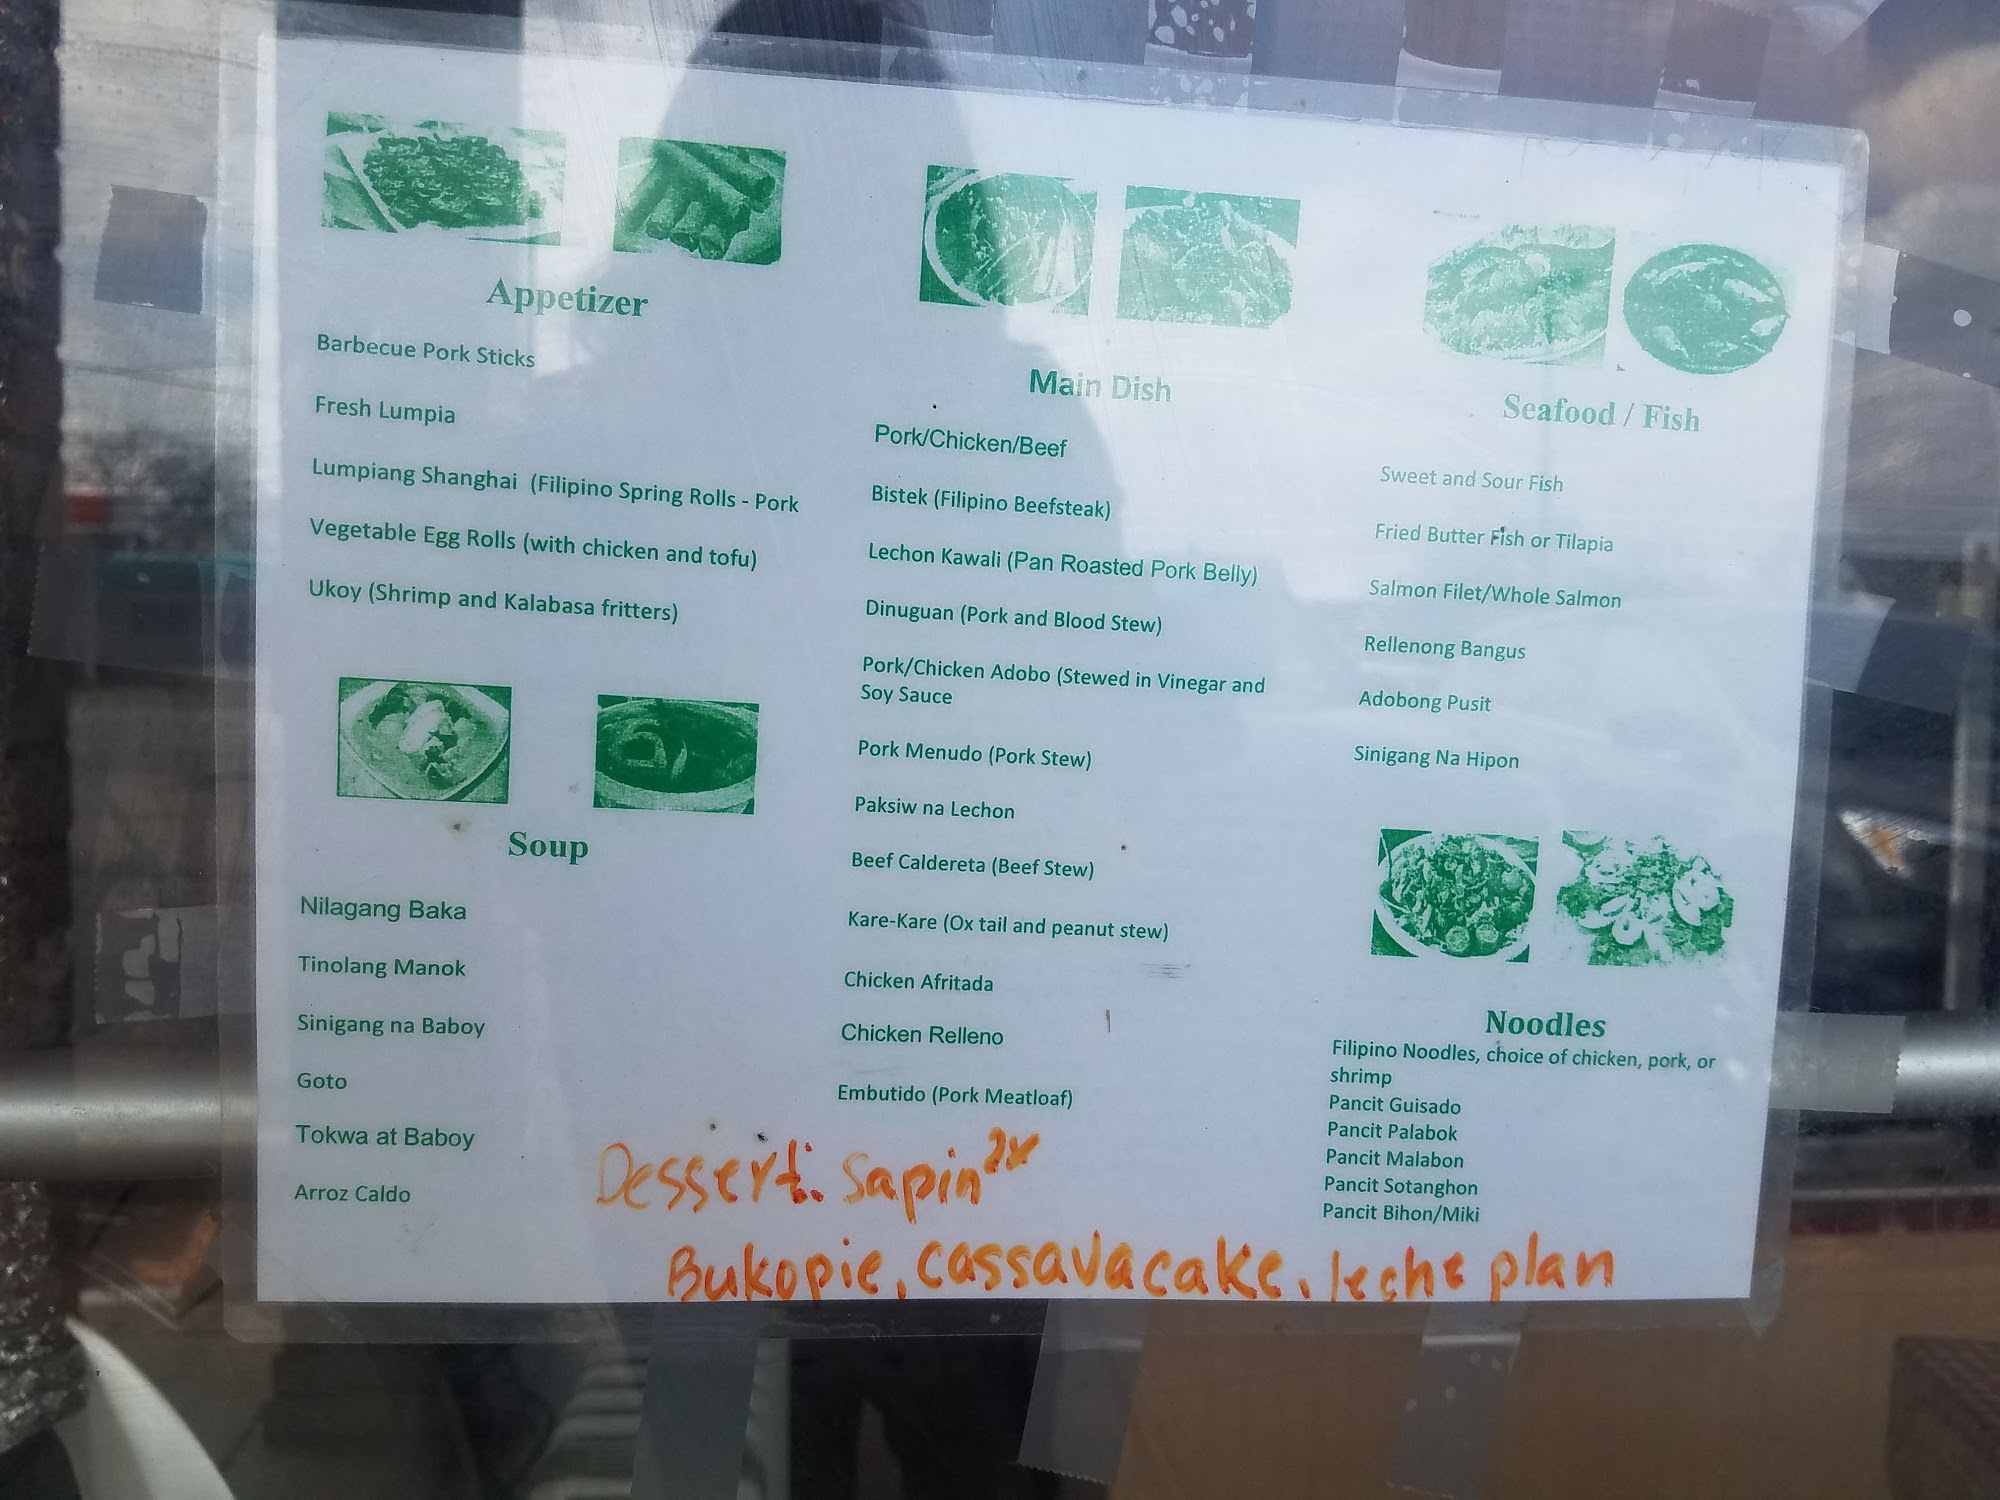 Appetizer
Barbecue Pork Sticks
Fresh Lumpia
Lumpiang Shanghai (Filipino Spring Rolls - Pork
Vegetable Egg Rolls (with chicken and tofu)
Ukoy (Shrimp and Kalabasa fritters)
Soup
Nilagang Baka
Tinolang Manok
Sinigang na Baboy
Goto
Tokwa at Baboy
Arroz Caldo
Main Dish
Pork/Chicken/Beef
Bistek (Filipino Beefsteak)
Lechon Kawali (Pan Roasted Pork Belly)
Dinuguan (Pork and Blood Stew)
Pork/Chicken Adobo (Stewed in Vinegar and
Soy Sauce
Pork Menudo (Pork Stew)
Paksiw na Lechon
Beef Caldereta (Beef Stew)
Kare-Kare (Ox tail and peanut stew)
Chicken Afritada
Chicken Relleno
Embutido (Pork Meatloaf)
Seafood / Fish
Sweet and Sour Fish
Fried Butter Fish or Tilapia
Salmon Filet/Whole Salmon
Rellenong Bangus
Adobong Pusit
Sinigang Na Hipon
Noodles
Filipino Noodles, choice of chicken, pork, or
shrimp
Pancit Guisado
Pancit Palabok
Pancit Malabon
Pancit Sotanghon
Pancit Bihon/Miki
Dessert: Sapin 2x
Bukopie, cassava cake, leche plan